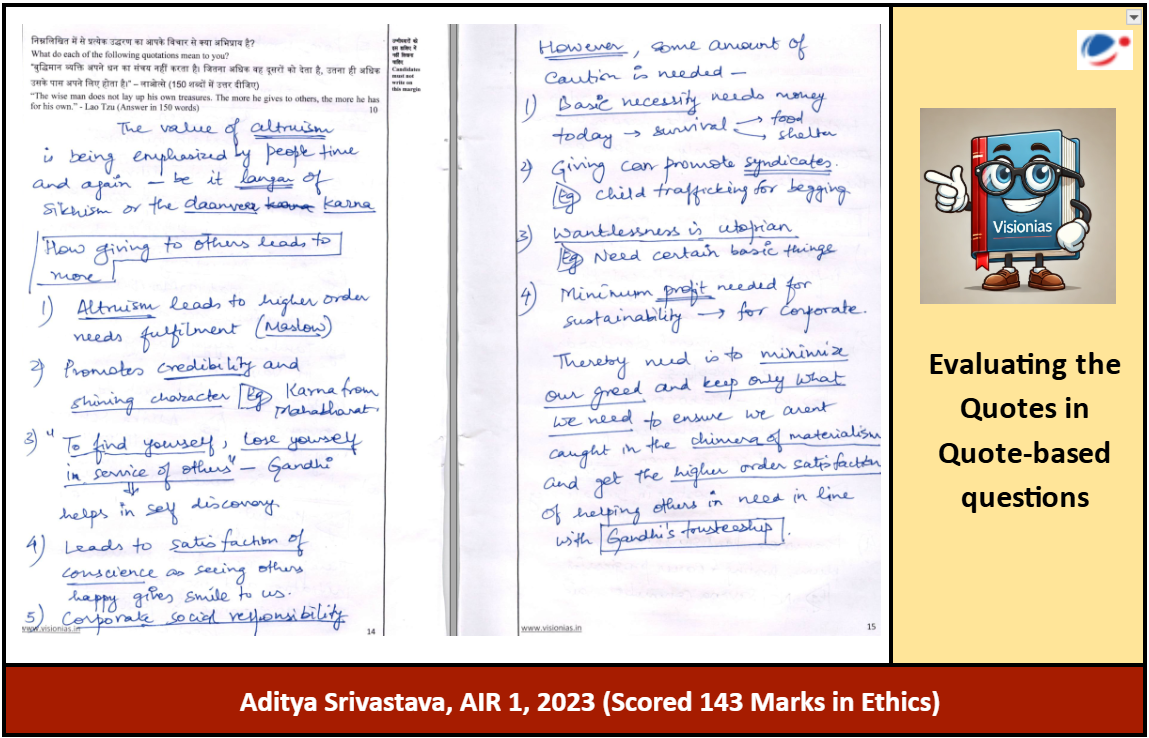 निम्नलिखित में से प्रत्येक उद्धरण का आपके विचार से क्या अभिप्राय है?
What do each of the following quotations mean to you?
"बुद्धिमान व्यक्ति अपने धन का संचय नहीं करता है। जितना अधिक वह दूसरों को देता है, उतना ही अधिक
उसके पास अपने लिए होता है।" – लाओत्से (150 शब्दों में उत्तर दीजिए)
"The wise man does not lay up his own treasures. The more he gives to others, the more he has
for his own." - Lao Tzu (Answer in 150 words) 10
उम्मीदवारों को
इस हाशिए में
नहीं लिखना
चाहिए
Candidates
must not
write on
this margin
The value of altruism
is being emphasized by people time
and again – be it langar of
Sikhism or the daanveer karna karna
How giving to others leads to
more
1) Altruism leads to higher order
needs fulfilment (Maslow)
2) Promotes credibility and
shining character Eg Karna from
Mahabharat.
3) "To find yourself, lose yourself
in service of others" – Gandhi
⇓
helps in self discovery.
4) Leads to satisfaction of
conscience as seeing others
happy gives smile to us.
5) Corporate social responsibility
www.visionias.in 14
However, some amount of
caution is needed –
1) Basic necessity needs money
today → survival → food
→ shelter
2) Giving can promote syndicates.
Eg child trafficking for begging.
3) Wantlessness is utopian
Eg Need certain basic things
4) Minimum profit needed for
sustainability → for corporate.
Thereby need is to minimize
our greed and keep only what
we need to ensure we arent
caught in the chimera of materialism
and get the higher order satisfaction
of helping others in need in line
with Gandhi's trusteeship.
www.visionias.in 15
Visionias
Evaluating the
Quotes in
Quote-based
questions
Aditya Srivastava, AIR 1, 2023 (Scored 143 Marks in Ethics)